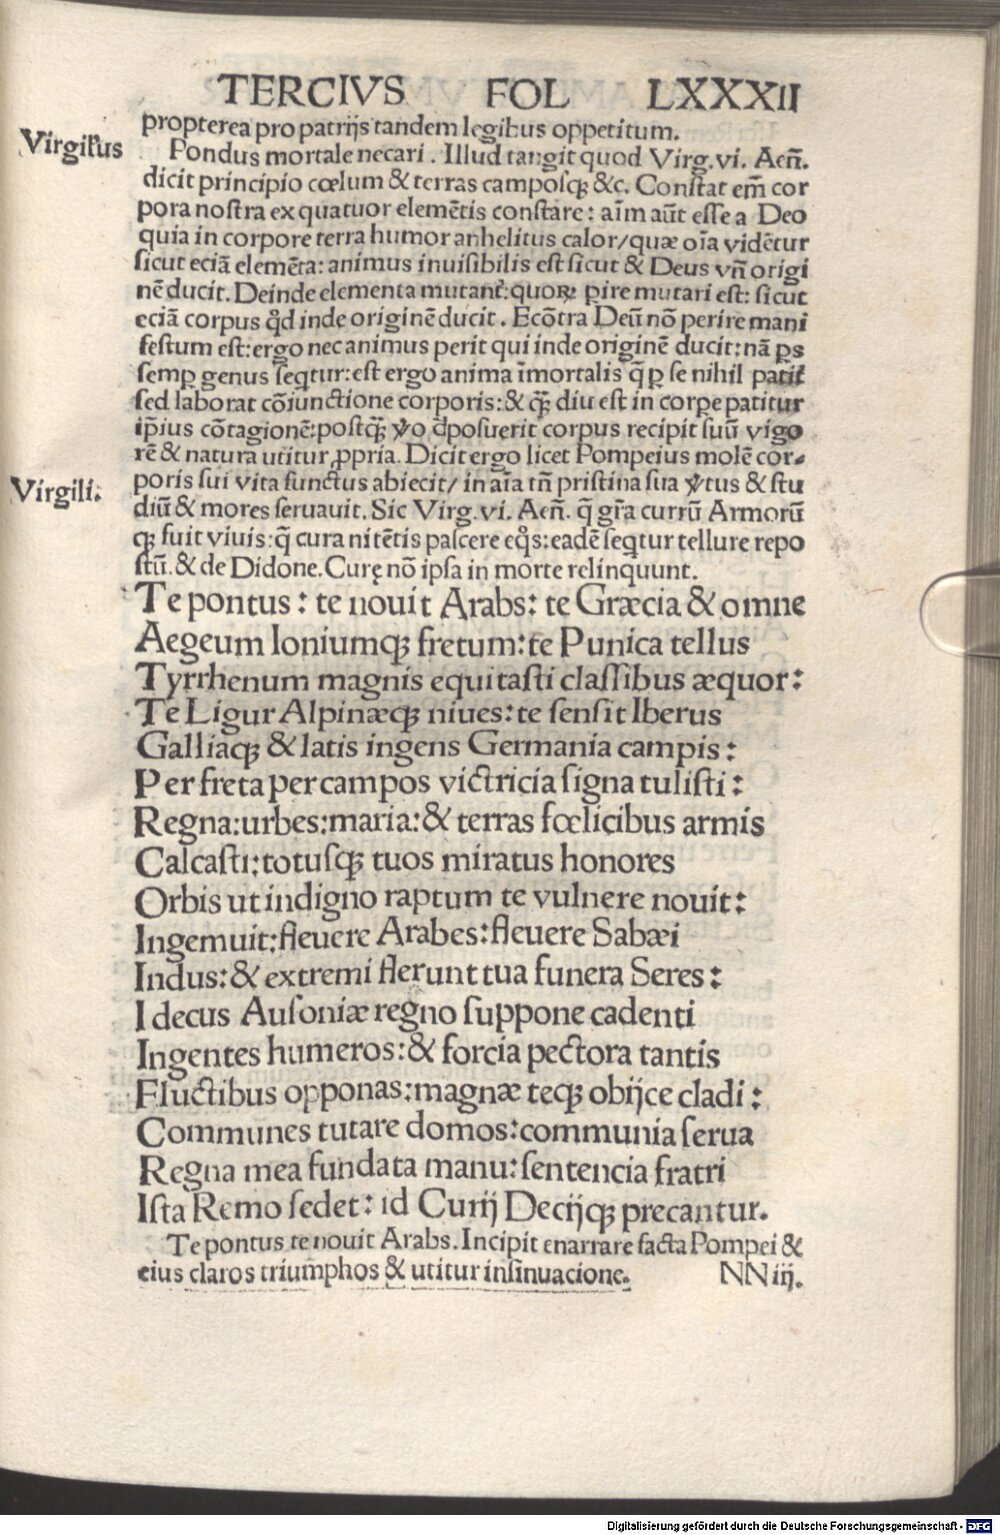 TERCIVS FOL LXXXII
propterea pro patrijs tandem legibus oppetitum.
Virgilius
Pondus mortale necari. Illud tangit quod Virg.vi. Aen̄.
dicit principio cœlum & terras camposqꝫ &c. Constat em̄ cor
pora nostra ex quatuor elemētis constare: aīm aūt esse a Deo
quia in corpore terra humor anhelitus calor/quæ oīa vidētur
sicut eciā elemēta: animus inuisibilis est sicut & Deus vn̄ origi
nē ducit. Deinde elementa mutant᷑: quoꝝ ꝑire mutari est: sicut
eciā corpus qd̓ inde originē ducit. Ecōtra Deū nō perire mani
festum est: ergo nec animus perit qui inde originē ducit: nā ꝑs
semꝑ genus seqtur: est ergo anima īmortalis q̄ ꝑ se nihil patit᷑
sed laborat cōiunctione corporis: & qꝫ̄ diu est in corꝑe patitur
ip̄ius cōtagionē: postqꝫ̄ v̓o dꝑosuerit corpus recipit suū vigo
rē & natura utitur ꝓpria. Dicit ergo licet Pompeius molē cor-
Virgili.
poris sui vita functus abiecit/ in aīa tn̄ pristina sua v̓tus & stu
diū & mores seruauit. Sic Virg.vi. Aen̄. q̄ gr̄a currū Armorū
qꝫ fuit viuis: q̄ cura nitētis pascere eq̓s: eadē seqtur tellure repo
stū. & de Didone. Curę nō ipsa in morte relinquunt.
Te pontus: te nouit Arabs: te Græcia & omne
Aegeum Ioniumqꝫ fretum: te Punica tellus
Tyrrhenum magnis equitasti classibus æquor:
Te Ligur Alpinæqꝫ niues: te sensit Iberus
Galliaqꝫ & latis ingens Germania campis:
Per freta per campos victricia signa tulisti:
Regna: urbes: maria: & terras fœlicibus armis
Calcasti: totusqꝫ tuos miratus honores
Orbis ut indigno raptum te vulnere nouit:
Ingemuit: fleuere Arabes: fleuere Sabæi
Indus: & extremi flerunt tua funera Seres:
I decus Ausoniæ regno suppone cadenti
Ingentes humeros: & forcia pectora tantis
Fluctibus opponas: magnæ teqꝫ obijce cladi:
Communes tutare domos: communia serua
Regna mea fundata manu: sentencia fratri
Ista Remo sedet: id Curij Decijqꝫ precantur.
Te pontus te nouit Arabs. Incipit enarrare facta Pompei &
eius claros triumphos & utitur insinuacione. NN iij.
Digitalisierung gefördert durch die Deutsche Forschungsgemeinschaft - DFG